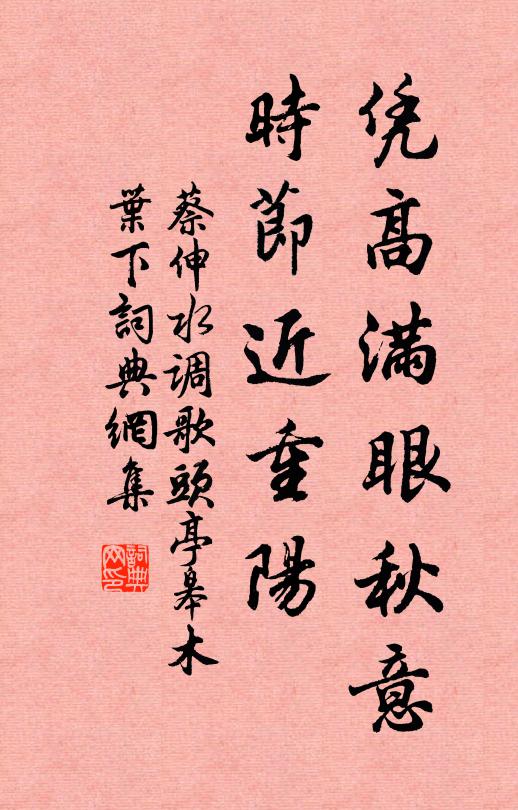 凭高满眼秋意
時節近重陽
蔡伸水调歌頭亭皋木
葉下詞典網集
詞典網印